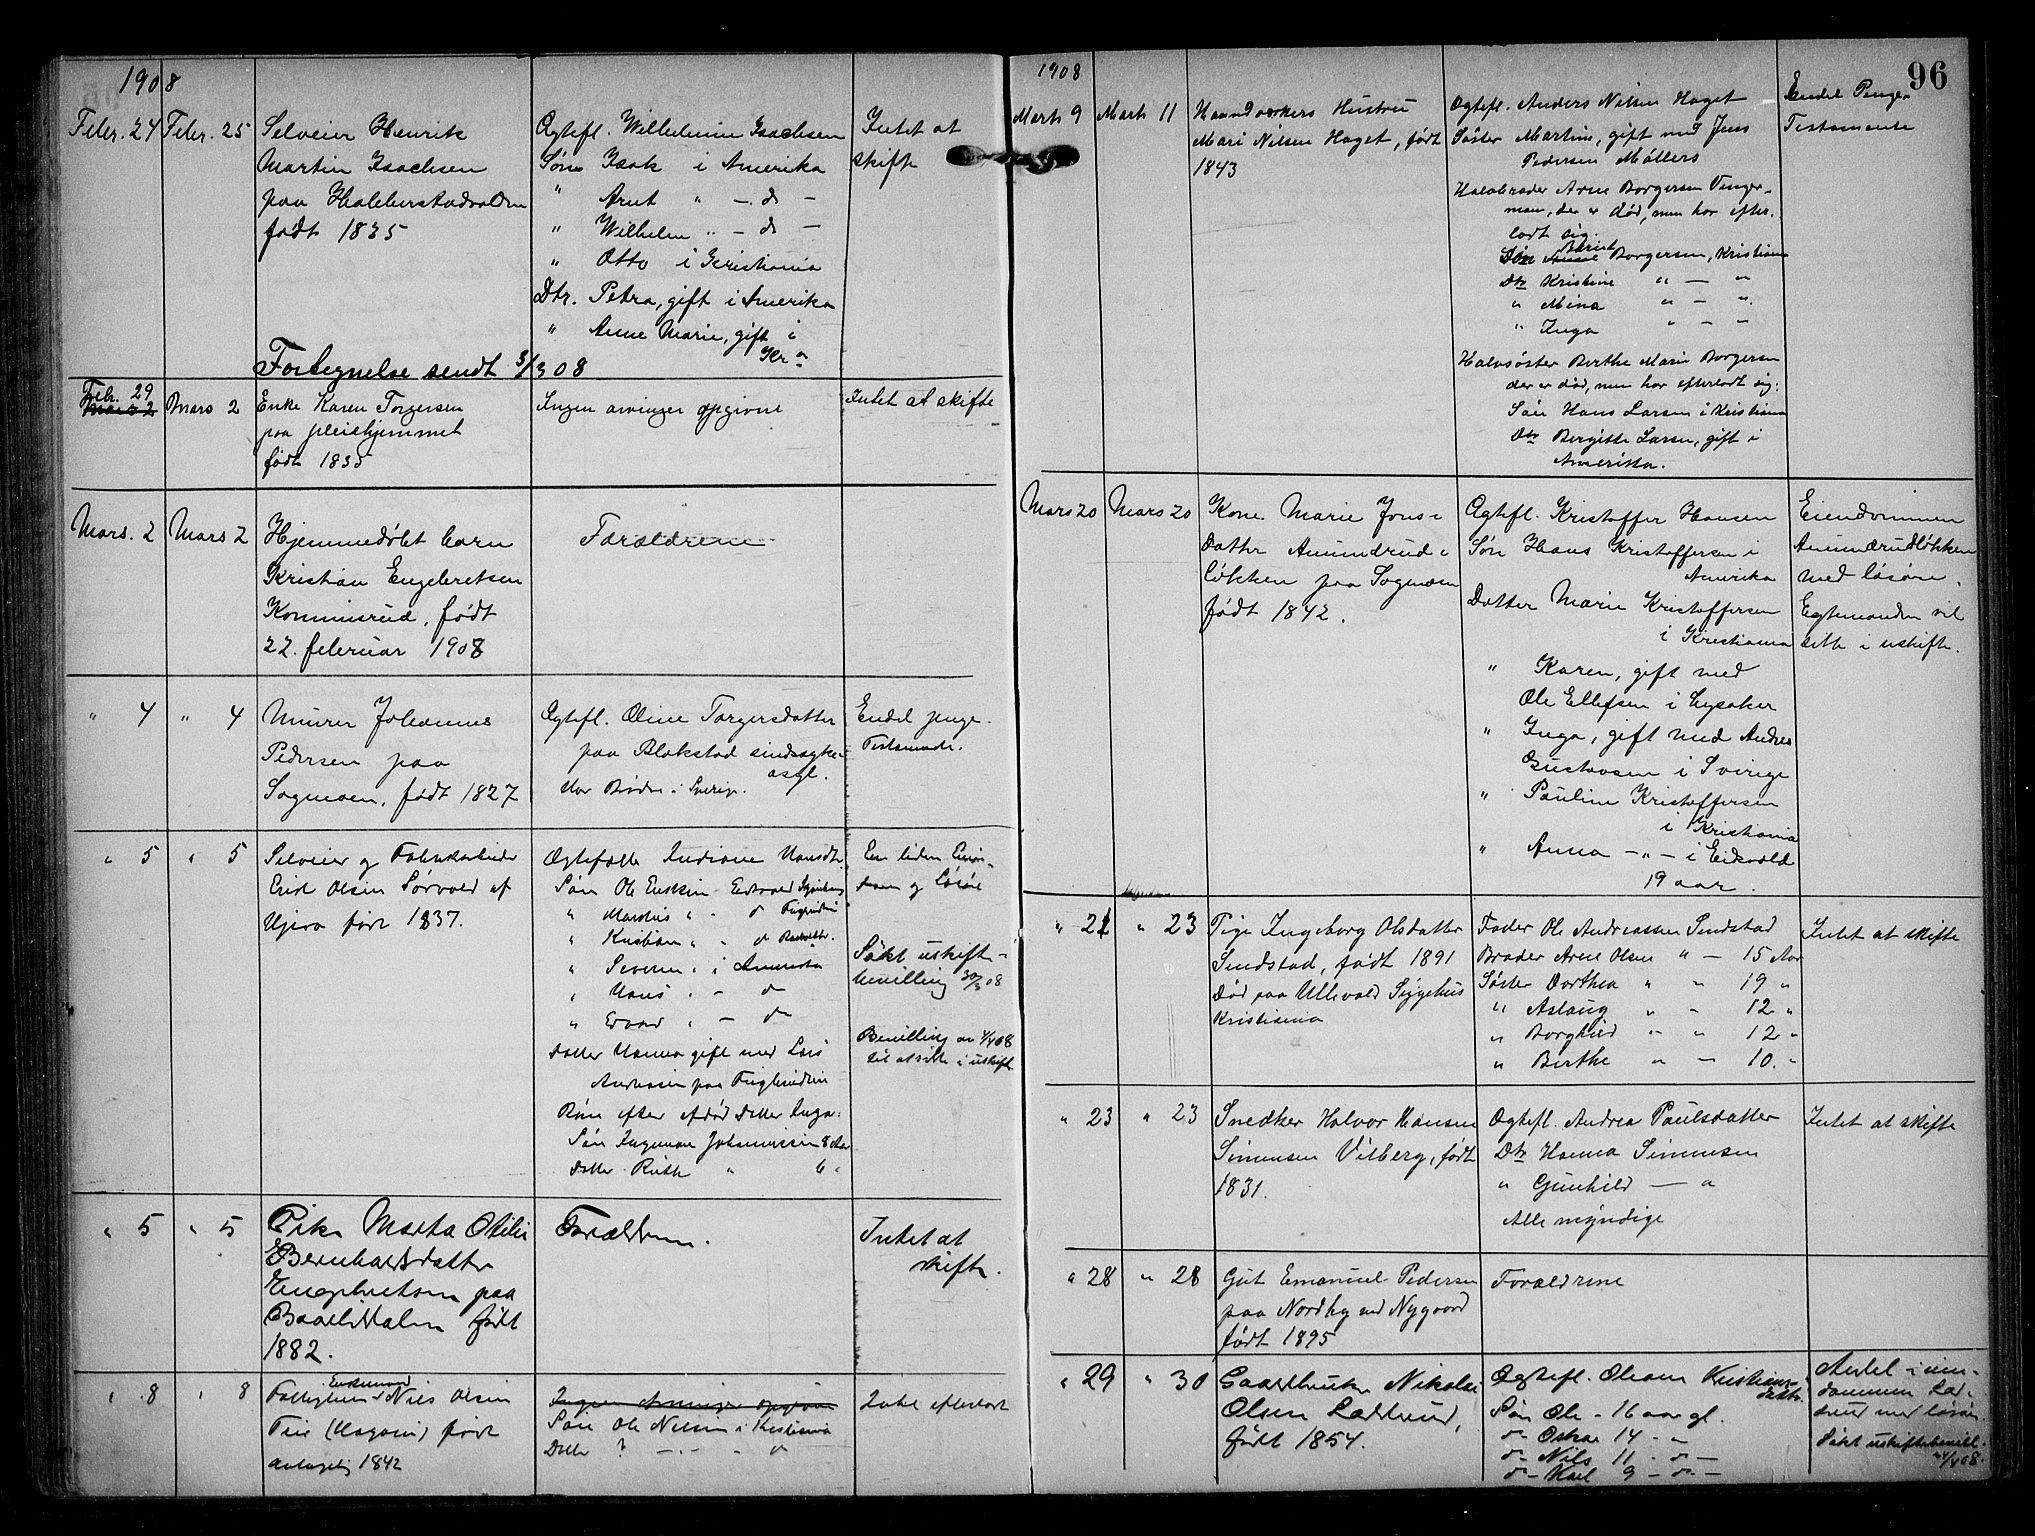 1908
Febr. 24 Febr. 25 Selveier Henrik
Martin Isachsen
paa Halberstadvolden
født 1835
Ogtefl. Wilhelmine Isachsen
Søn Isak i Amerika
" Arnt " — do —
" Wilhelm " — do —
" Otto i Kristiania
Dtr. Petra, gift i Amerika
" Anne Marie, gift i
Kr a
Intet at
skifte
Fortegnelse sendt 3/3 08
Febr. 29
Mars 2 Mars 2 Enke Karen Torgersen
paa pleiehjemmet
født 1835
Ingen arvinger opgivne
Intet at skifte
Mars. 2 Mars 2 Hjemmedøbt barn
Kristian Engebretsen
Kommisrud, født
22. februar 1908
Forældrene
" 4 " 4 Murer Johannes
Pedersen paa
Sogmoen, født 1827
Ogtefl. Oline Torgersdatter
paa Blakstad sindssyke-
asyl.
Har Brødre i Sverige.
Endel penge.
Testamente.
" 5 " 5 Selveier og Fabrikarbeider
Erik Olsen Sørvald af
født 1837.
Ogtefælle Indiane Hansdtr
Søn Ole Eriksen Eidsvold
" Marthis " - do
" Kristian " - do
" Severin " i Amerika
" Hans " - do
" Edvard " - do
Datter Hanna gift med Lars
Andreasen paa
Børn efter afdød Datter Inga:
Søn Ingeman Johannessen 8 Aar
Datter Ruth " 6 "
En liden Eien-
dom og Løsøre
Søkt uskifte-
bevilling 30/3 08
Bevilling av 4/4 08
til at sitte i uskifte
" 5 " 5 Pike Marta Otilie
Bernhardsdatter
Engebretsen paa
født
1882.
Forældrene.
Intet at
skifte.
" 8 " 8 Enkemand
Nils Olsen
født
antagelig 1842
Ingen Arvinger opgivne
Søn Ole Nilsen i Kristiania
Datter ? — " — " do
Intet efterladt
96
1908
Marts 9 Marts 11 Haandværkers Hustru
Mari Nilsen Haget, født
1843
Ogtefl. Anders Nilsen Haget
Søster Martine, gift med Jens
Pedersen Møllers
Halvbroder Arne Borgersen Venger-
moen, der er død, men har efter-
ladt sig:
Søn Borgersen, Kristiania
Dtr Kristine " — "
" Mina " — "
" Inga " — "
Halvsøster Berthe Marie Borgersen
der er død, men har efterladt sig:
Søn Hans Larsen i Kristiania
Dtr Bergitte Larsen, gift i
Amerika.
Endel Penger
Testamente
Mars 20 Mars 20 Kone Marie Jons-
datter Amundrud-
løkken paa Sogmoen
født 1842.
Ogtefl. Kristoffer Hansen
Søn Hans Kristoffersen i
Amerika
Datter Marie Kristoffersen
i Kristiania
" Karen, gift med
Ole Ellefsen i Lysaker
" Inga, gift med Andres
Gustavsen i Sverige
" Pauline Kristoffersen
i Kristiania
" Anna — " — i Eidsvold
19 aar.
Eiendommen
Amundrudløkken
med løsøre.
Egtemanden vil
sitte i uskifte.
" 21 " 23 Pige Ingeborg Olsdatter
Sundstad, født 1891
død paa Ullevold Sygehus
Kristiania
Fader Ole Andreassen Sundstad
Broder Arne Olsen " — 15 Aar
Søster Dorthea " " 19 "
" Aslaug " - 12 "
" Borghild " " 12 "
" Berthe " — 10. "
Intet at skifte
" 23 " 23 Snedker Halvor Hansen
Simensen Vilberg, født
1831.
Ogtefl. Andrea Paulsdatter
Dtr Hanna Simensen
" Gunhild — "
Alle myndige
Intet at skifte
" 28 " 28 Gut Emanuel Pedersen
paa Nordby ved Nygaard
født 1895
Forældrene
" 29 " 30 Gaardbruker Nikolai
Olsen Ladderud,
født 1854.
Ogtefl. Oleane Kristians-
datter.
Søn Ole - 16 aar gl.
do Oskar 14 - "
do Nils 11 - do -
do Karl 9 - do -
Andel i eien-
dommen Lad-
derud med løsøre
Søkt uskiftebevill.
24/4 08.